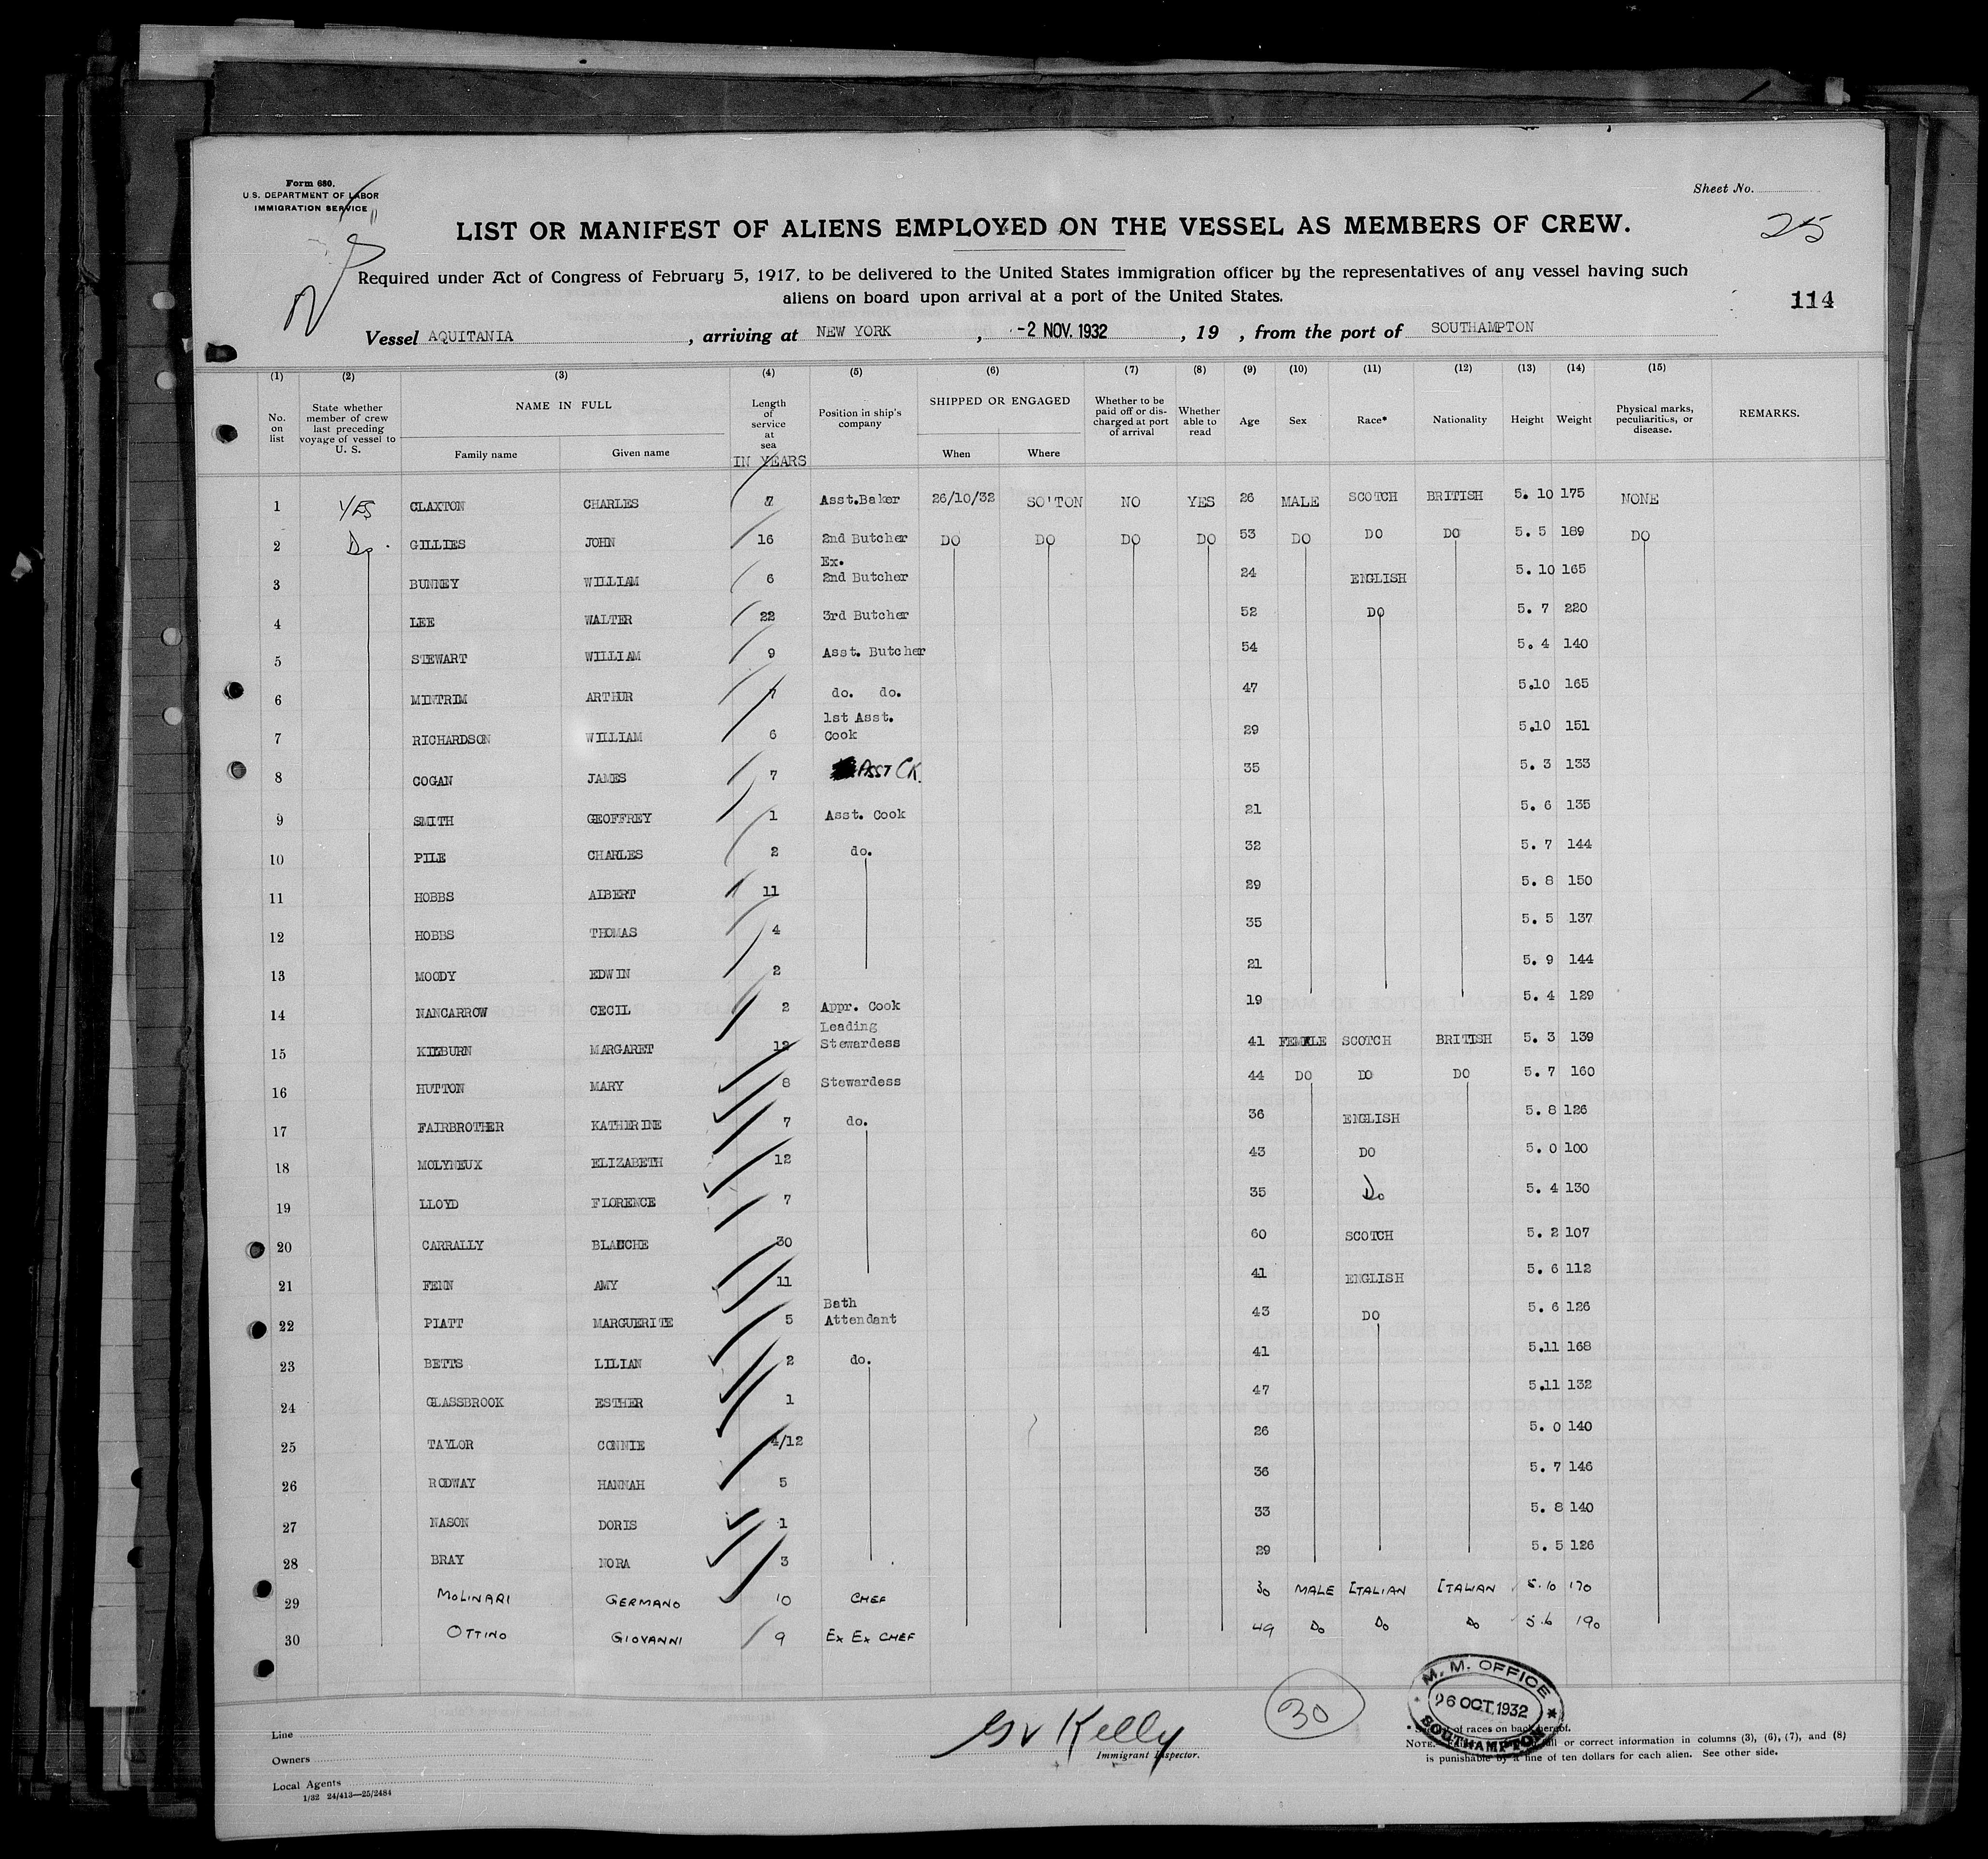 Form 680.
U.S. DEPARTMENT OF LABOR
IMMIGRATION SERVICE
Sheet No.
25
LIST OR MANIFEST OF ALIENS EMPLOYED ON THE VESSEL AS MEMBERS OF CREW.
Required under Act of Congress of February 5, 1917, to be delivered to the United States immigration officer by the representatives of any vessel having such
aliens on board upon arrival at a port of the United States.
114
Vessel AQUITANIA, arriving at NEW YORK, -2 NOV. 1932, 19 , from the port of SOUTHAMPTON
(1) (2) (3) (4) (5) (6) (7) (8) (9) (10) (11) (12) (13) (14) (15)
No. on list State whether member of crew last preceding voyage of vessel to U. S. NAME IN FULL Family name Given name Length of service at sea IN YEARS Position in ship's company SHIPPED OR ENGAGED When Where Whether to be paid off or discharged at port of arrival Whether able to read Age Sex Race* Nationality Height Weight Physical marks, peculiarities, or disease. REMARKS.
1 YES CLAXTON CHARLES 7 Asst.Baker 26/10/32 SO'TON NO YES 26 MALE SCOTCH BRITISH 5. 10 175 NONE
2 Do GILLIES JOHN 16 2nd Butcher DO DO DO DO 53 DO DO DO 5. 5 189 DO
3 BUNNEY WILLIAM 6 Ex. 2nd Butcher 24 ENGLISH 5. 10 165
4 LEE WALTER 22 3rd Butcher 52 DO 5. 7 220
5 STEWART WILLIAM 9 Asst. Butcher 54 5. 4 140
6 MINTRIM ARTHUR 7 do. do. 47 5.10 165
7 RICHARDSON WILLIAM 6 1st Asst. Cook 29 5.10 151
8 COGAN JAMES 7 ASST CK. 35 5. 3 133
9 SMITH GEOFFREY 1 Asst. Cook 21 5. 6 135
10 PILE CHARLES 2 do. 32 5. 7 144
11 HOBBS ALBERT 11 29 5. 8 150
12 HOBBS THOMAS 4 35 5. 5 137
13 MOODY EDWIN 2 21 5. 9 144
14 NANCARROW CECIL 2 Appr. Cook 19 5. 4 129
15 KILBURN MARGARET 12 Leading Stewardess 41 FEMALE SCOTCH BRITISH 5. 3 139
16 HUTTON MARY 8 Stewardess 44 DO DO DO 5. 7 160
17 FAIRBROTHER KATHERINE 7 do. 36 ENGLISH 5. 8 126
18 MOLYNEUX ELIZABETH 12 43 DO 5. 0 100
19 LLOYD FLORENCE 7 35 Do 5. 4 130
20 CARRALLY BLANCHE 30 60 SCOTCH 5. 2 107
21 FENN AMY 11 41 ENGLISH 5. 6 112
22 PIATT MARGUERITE 5 Bath Attendant 43 DO 5. 6 126
23 BETTS LILIAN 2 do. 41 5.11 168
24 GLASSBROOK ESTHER 1 47 5.11 132
25 TAYLOR CONNIE 4/12 26 5. 0 140
26 RODWAY HANNAH 5 36 5. 7 146
27 NASON DORIS 1 33 5. 8 140
28 BRAY NORA 3 29 5. 5 126
29 MOLINARI GERMANO 10 CHEF 30 MALE ITALIAN ITALIAN 5.10 170
30 OTTINO GIOVANNI 9 EX EX CHEF 49 Do Do Do 5.6 190
Line
Owners
Local Agents
1/32 24/413—25/2484
Kelly
Immigrant Inspector.
30
M. M. OFFICE
26 OCT. 1932
SOUTHAMPTON
of races on back hereof.
NOTE. or correct information in columns (3), (6), (7), and (8)
is punishable by a fine of ten dollars for each alien. See other side.